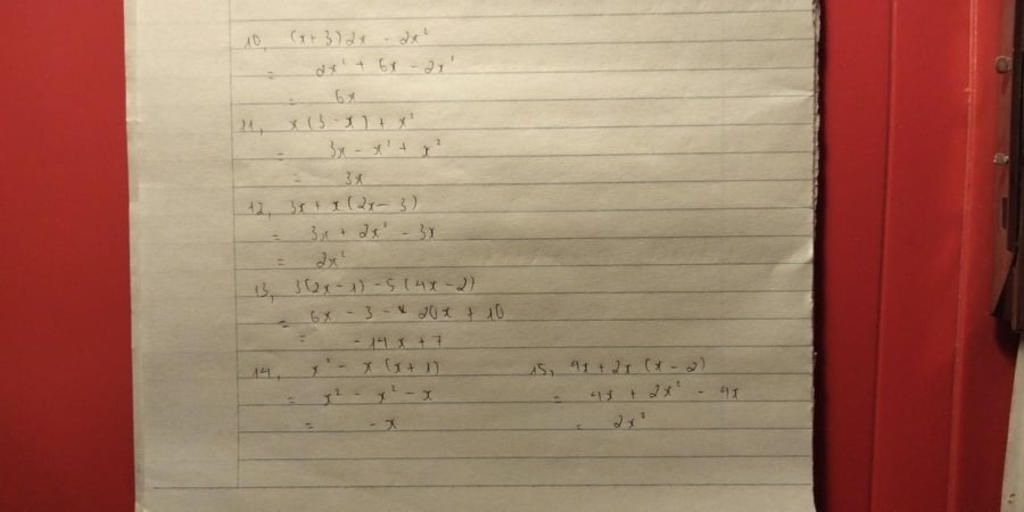 10, (x+3)2x - 2x²
= 2x² + 6x - 2x²
= 6x
11, x(3-x) + x²
= 3x - x² + x²
= 3x
12, 3x + x(2x-3)
= 3x + 2x² - 3x
= 2x²
13, 3(2x-1) - 5(4x-2)
= 6x - 3 - 20x + 10
= -14x + 7
14, x² - x(x+1)
= x² - x² - x
= -x
15, 4x + 2x(x-2)
= 4x + 2x² - 4x
= 2x²